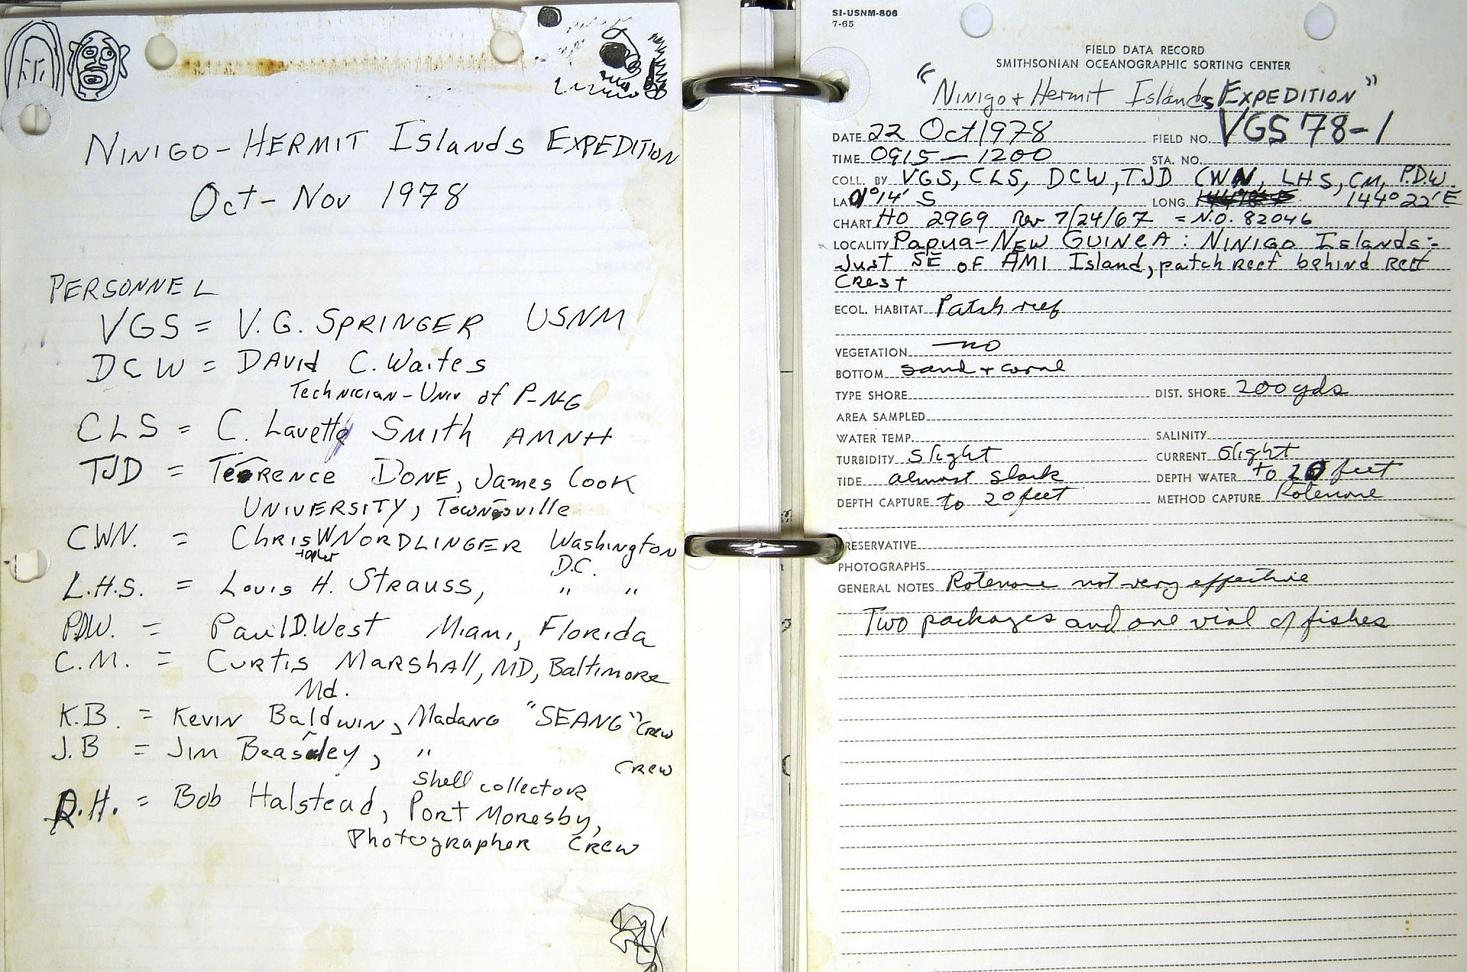 NINIGO-HERMIT Islands EXPEDITION
Oct-Nov 1978
PERSONNEL
VGS = V.G. SPRINGER USNM
DCW = DAVID C. Waites
Technician-Univ of P-NG
CLS = C. Lavette Smith AMNH
TJD = TERRENCE DONE, James Cook
UNIVERSITY, Townsville
CWN. = CHRIS W NORDLINGER Washington
topher D.C.
L.H.S. = Louis H. Strauss, " "
PDW. = Paul D. West Miami, Florida
C.M. = Curtis Marshall, MD, Baltimore
Md.
K.B. = Kevin Baldwin, Madang "SEANG" crew
J.B = Jim Beasley, " crew
shell collector
R.H. = Bob Halstead, Port Moresby,
Photographer crew
SI-USNM-806
7-65
FIELD DATA RECORD
SMITHSONIAN OCEANOGRAPHIC SORTING CENTER
"Ninigo + Hermit Islands EXPEDITION"
DATE 22 Oct 1978 FIELD NO. VGS 78-1
TIME 0915 - 1200 STA. NO.
COLL. BY VGS, CLS, DCW, TJD CWN, LHS, CM, PDW
LAT 1°14' S LONG. 144°22'E
CHART HO 2969 Rev 7/24/67 = N.O. 82046
LOCALITY Papua-NEW GUINEA: NINIGO Islands:-
Just SE of AMI Island, patch reef behind reef
crest
ECOL. HABITAT Patch reef
VEGETATION no
BOTTOM sand + coral
TYPE SHORE DIST. SHORE 200 yds
AREA SAMPLED
WATER TEMP. SALINITY
TURBIDITY slight CURRENT slight
TIDE almost slack DEPTH WATER to 20 feet
DEPTH CAPTURE to 20 feet METHOD CAPTURE Rotenone
PRESERVATIVE
PHOTOGRAPHS
GENERAL NOTES Rotenone not very effective
Two packages and one vial of fishes